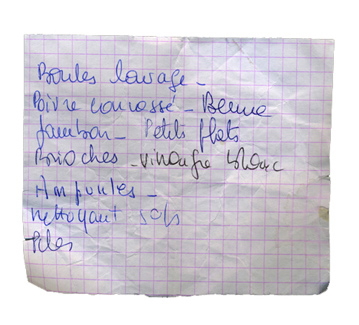 Boules lavage -
Poivre concassé - Beurre
Jambon - Petits plats
Brioches - vinaigre blanc
Ampoules -
nettoyant sols
Piles